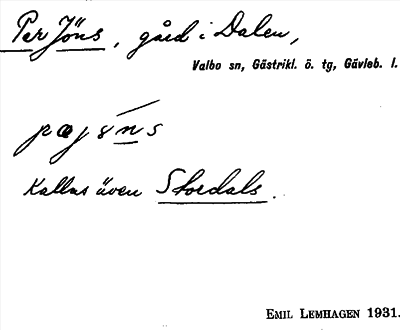 Per Jöns, gård i Dalen,
Valbo sn, Gästrikl. ö. tg, Gävleb. l.
Kallas även Stordals.
EMIL LEMHAGEN 1931.